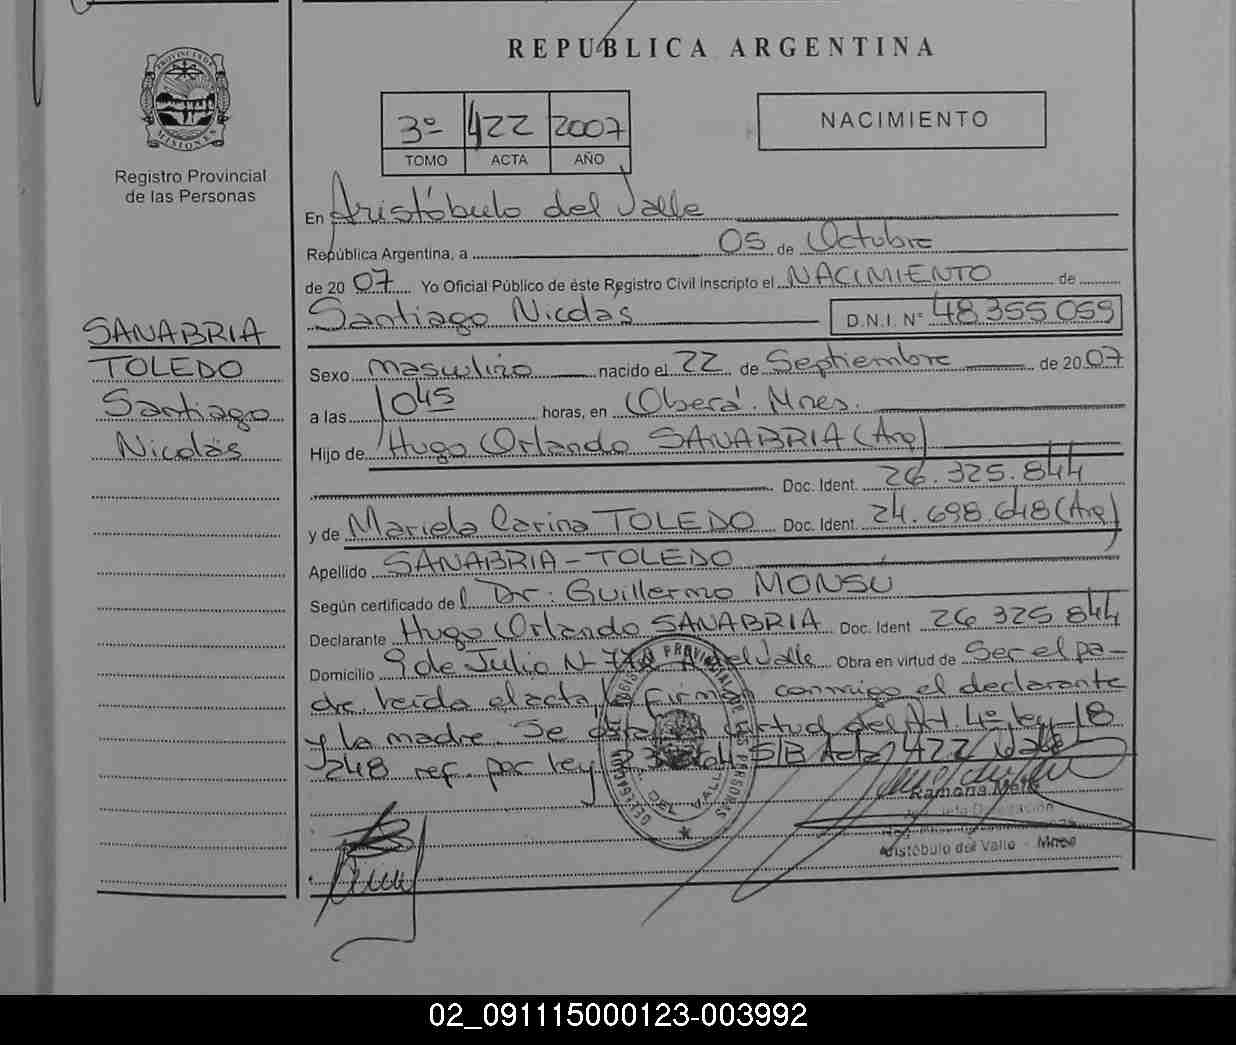 REPUBLICA ARGENTINA
PROVINCIA DE
MISIONES
Registro Provincial
de las Personas
3º 422 2007
TOMO ACTA AÑO
NACIMIENTO
En Aristóbulo del Valle
República Argentina, a 05 de Octubre
de 2007 Yo Oficial Público de éste Registro Civil Inscripto el NACIMIENTO de
Santiago Nicolás D.N.I. Nº 48.355.059
SANABRIA
TOLEDO
Santiago
Nicolás
Sexo masculino nacido el 22 de Septiembre de 2007
a las 10 45 horas, en Oberá. Mnes.
Hijo de Hugo Orlando SANABRIA (Arg)
Doc. Ident. 26.325.844
y de Mariela Carina TOLEDO Doc. Ident. 24.698.648 (Arg)
Apellido SANABRIA-TOLEDO
Según certificado del Dr. Guillermo MONSÚ
Declarante Hugo Orlando SANABRIA Doc. Ident 26 325 844
Domicilio 9 de Julio Nº A. del Valle Obra en virtud de Ser el pa-
dre leída el acta, la firman conmigo el declarante
y la madre. Se virtud del Art. 4º ley 18
248 ref. por ley S/B Acta 422 Vale
Ramona
Aristóbulo del Valle - Mnes
02_091115000123-003992